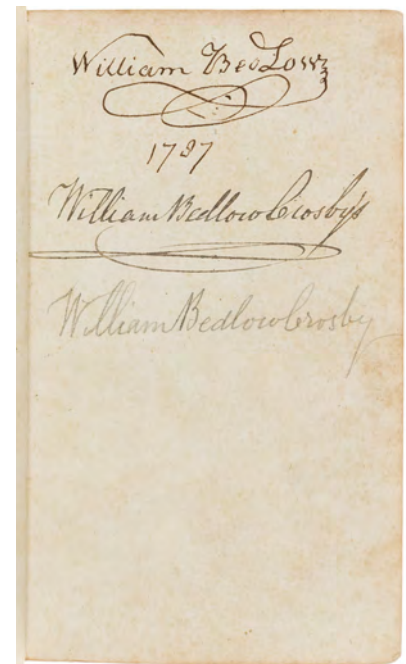 William Bedlow
1787
William Bedlow Crosby's
William Bedlow Crosby